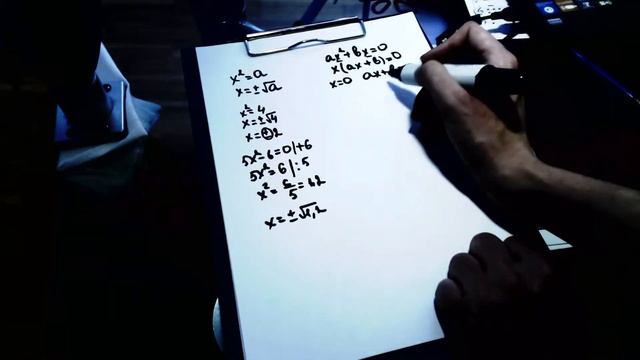 x² = a
x = ±√a
x² = 4
x = ±√4
x = ±2
5x² - 6 = 0 | +6
5x² = 6 | : 5
x² = 6/5 = 1,2
x = ±√1,2
ax² + bx = 0
x(ax + b) = 0
x = 0 ax + b